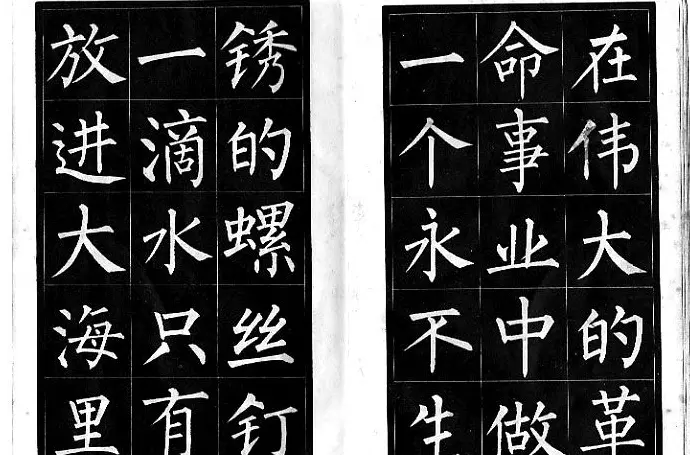 在伟大的革
命事业中做
一个永不生
锈的螺丝钉
一滴水只有
放进大海里